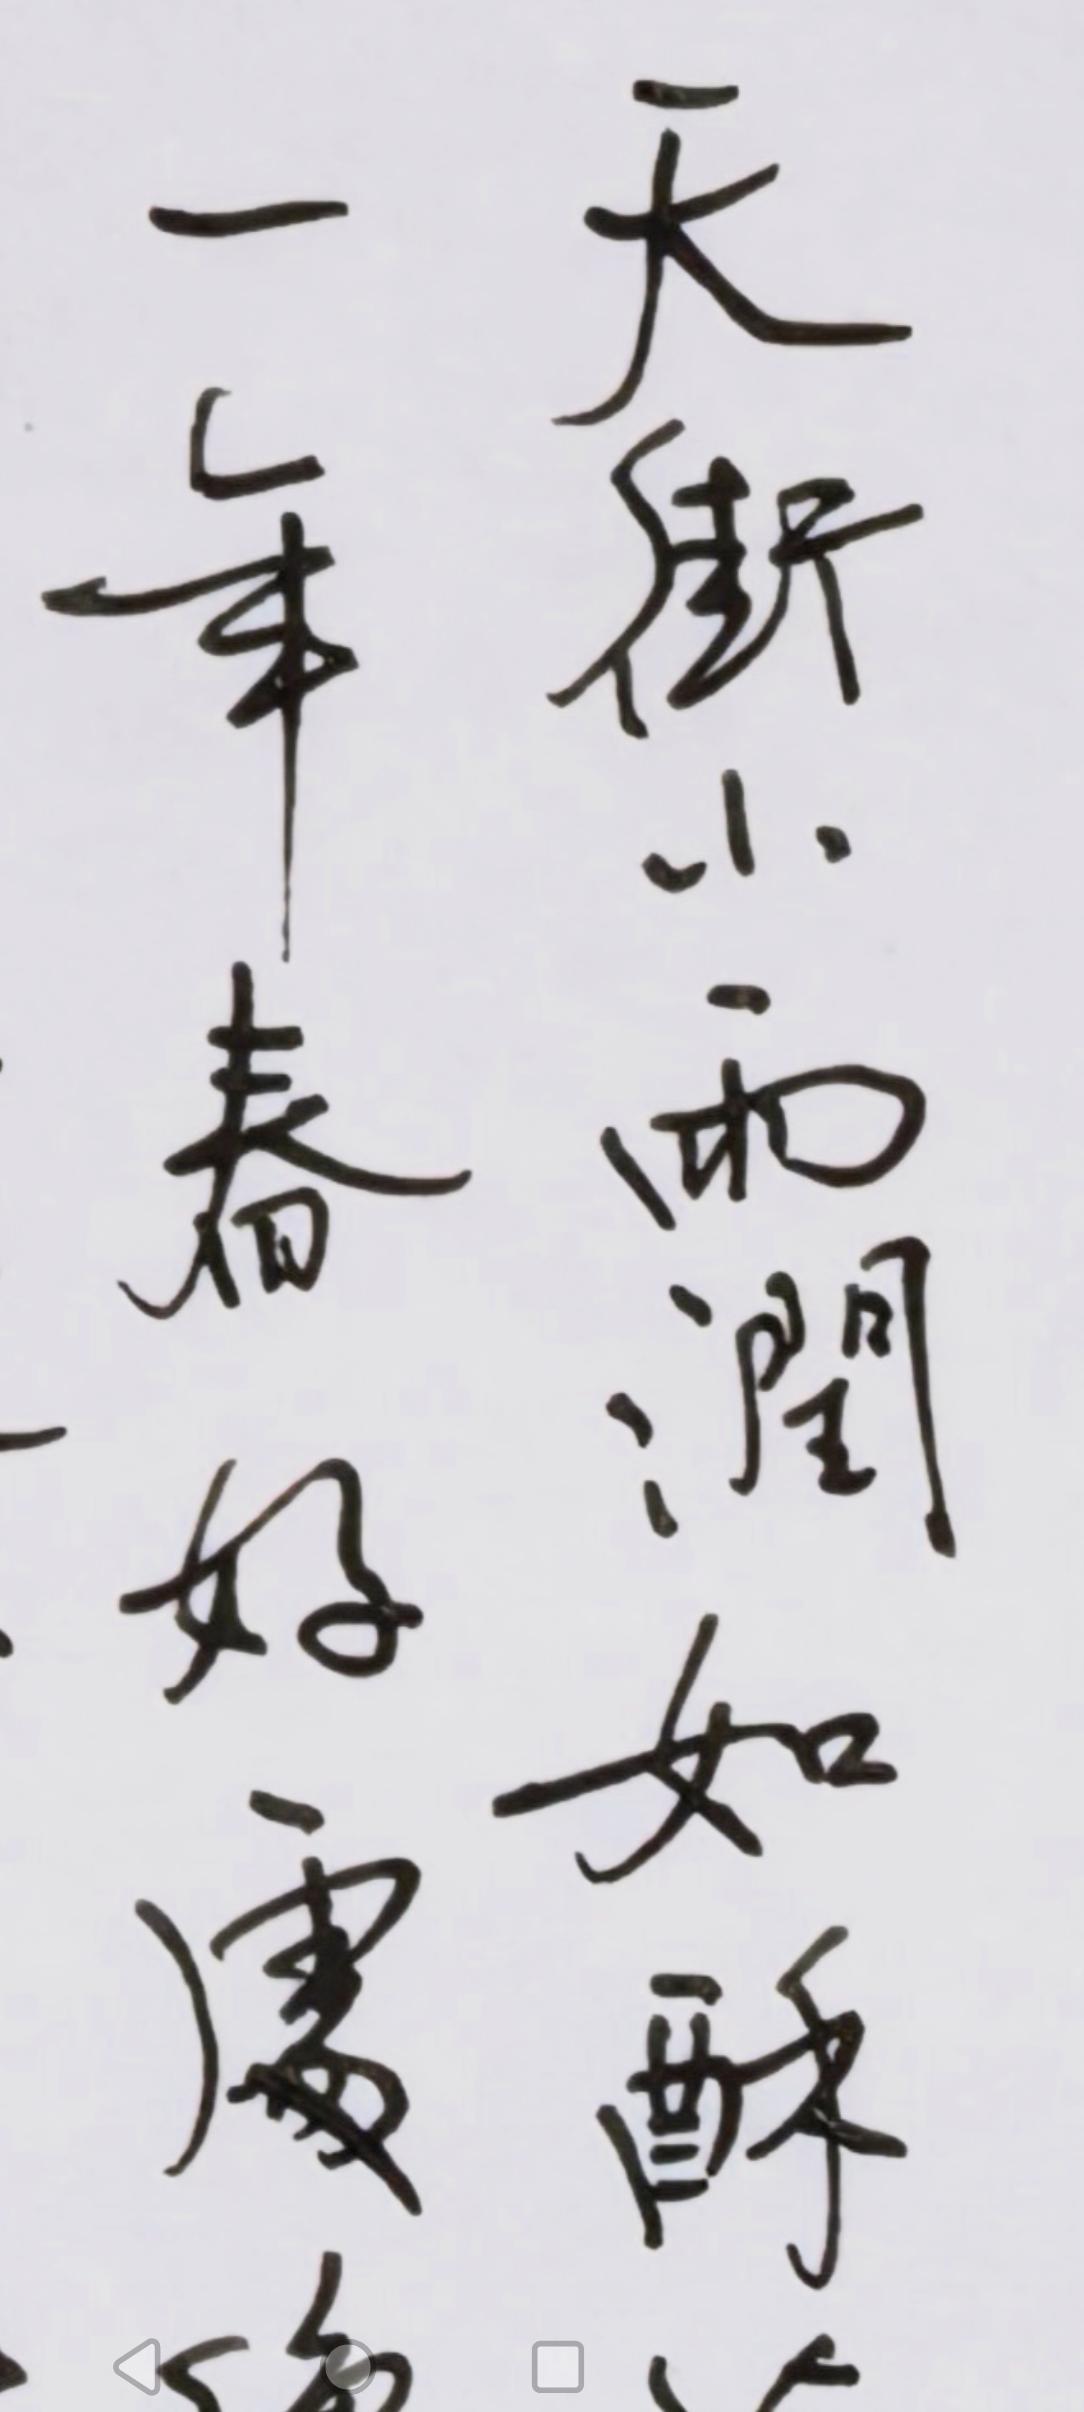 天街小雨潤如酥
一年春好處